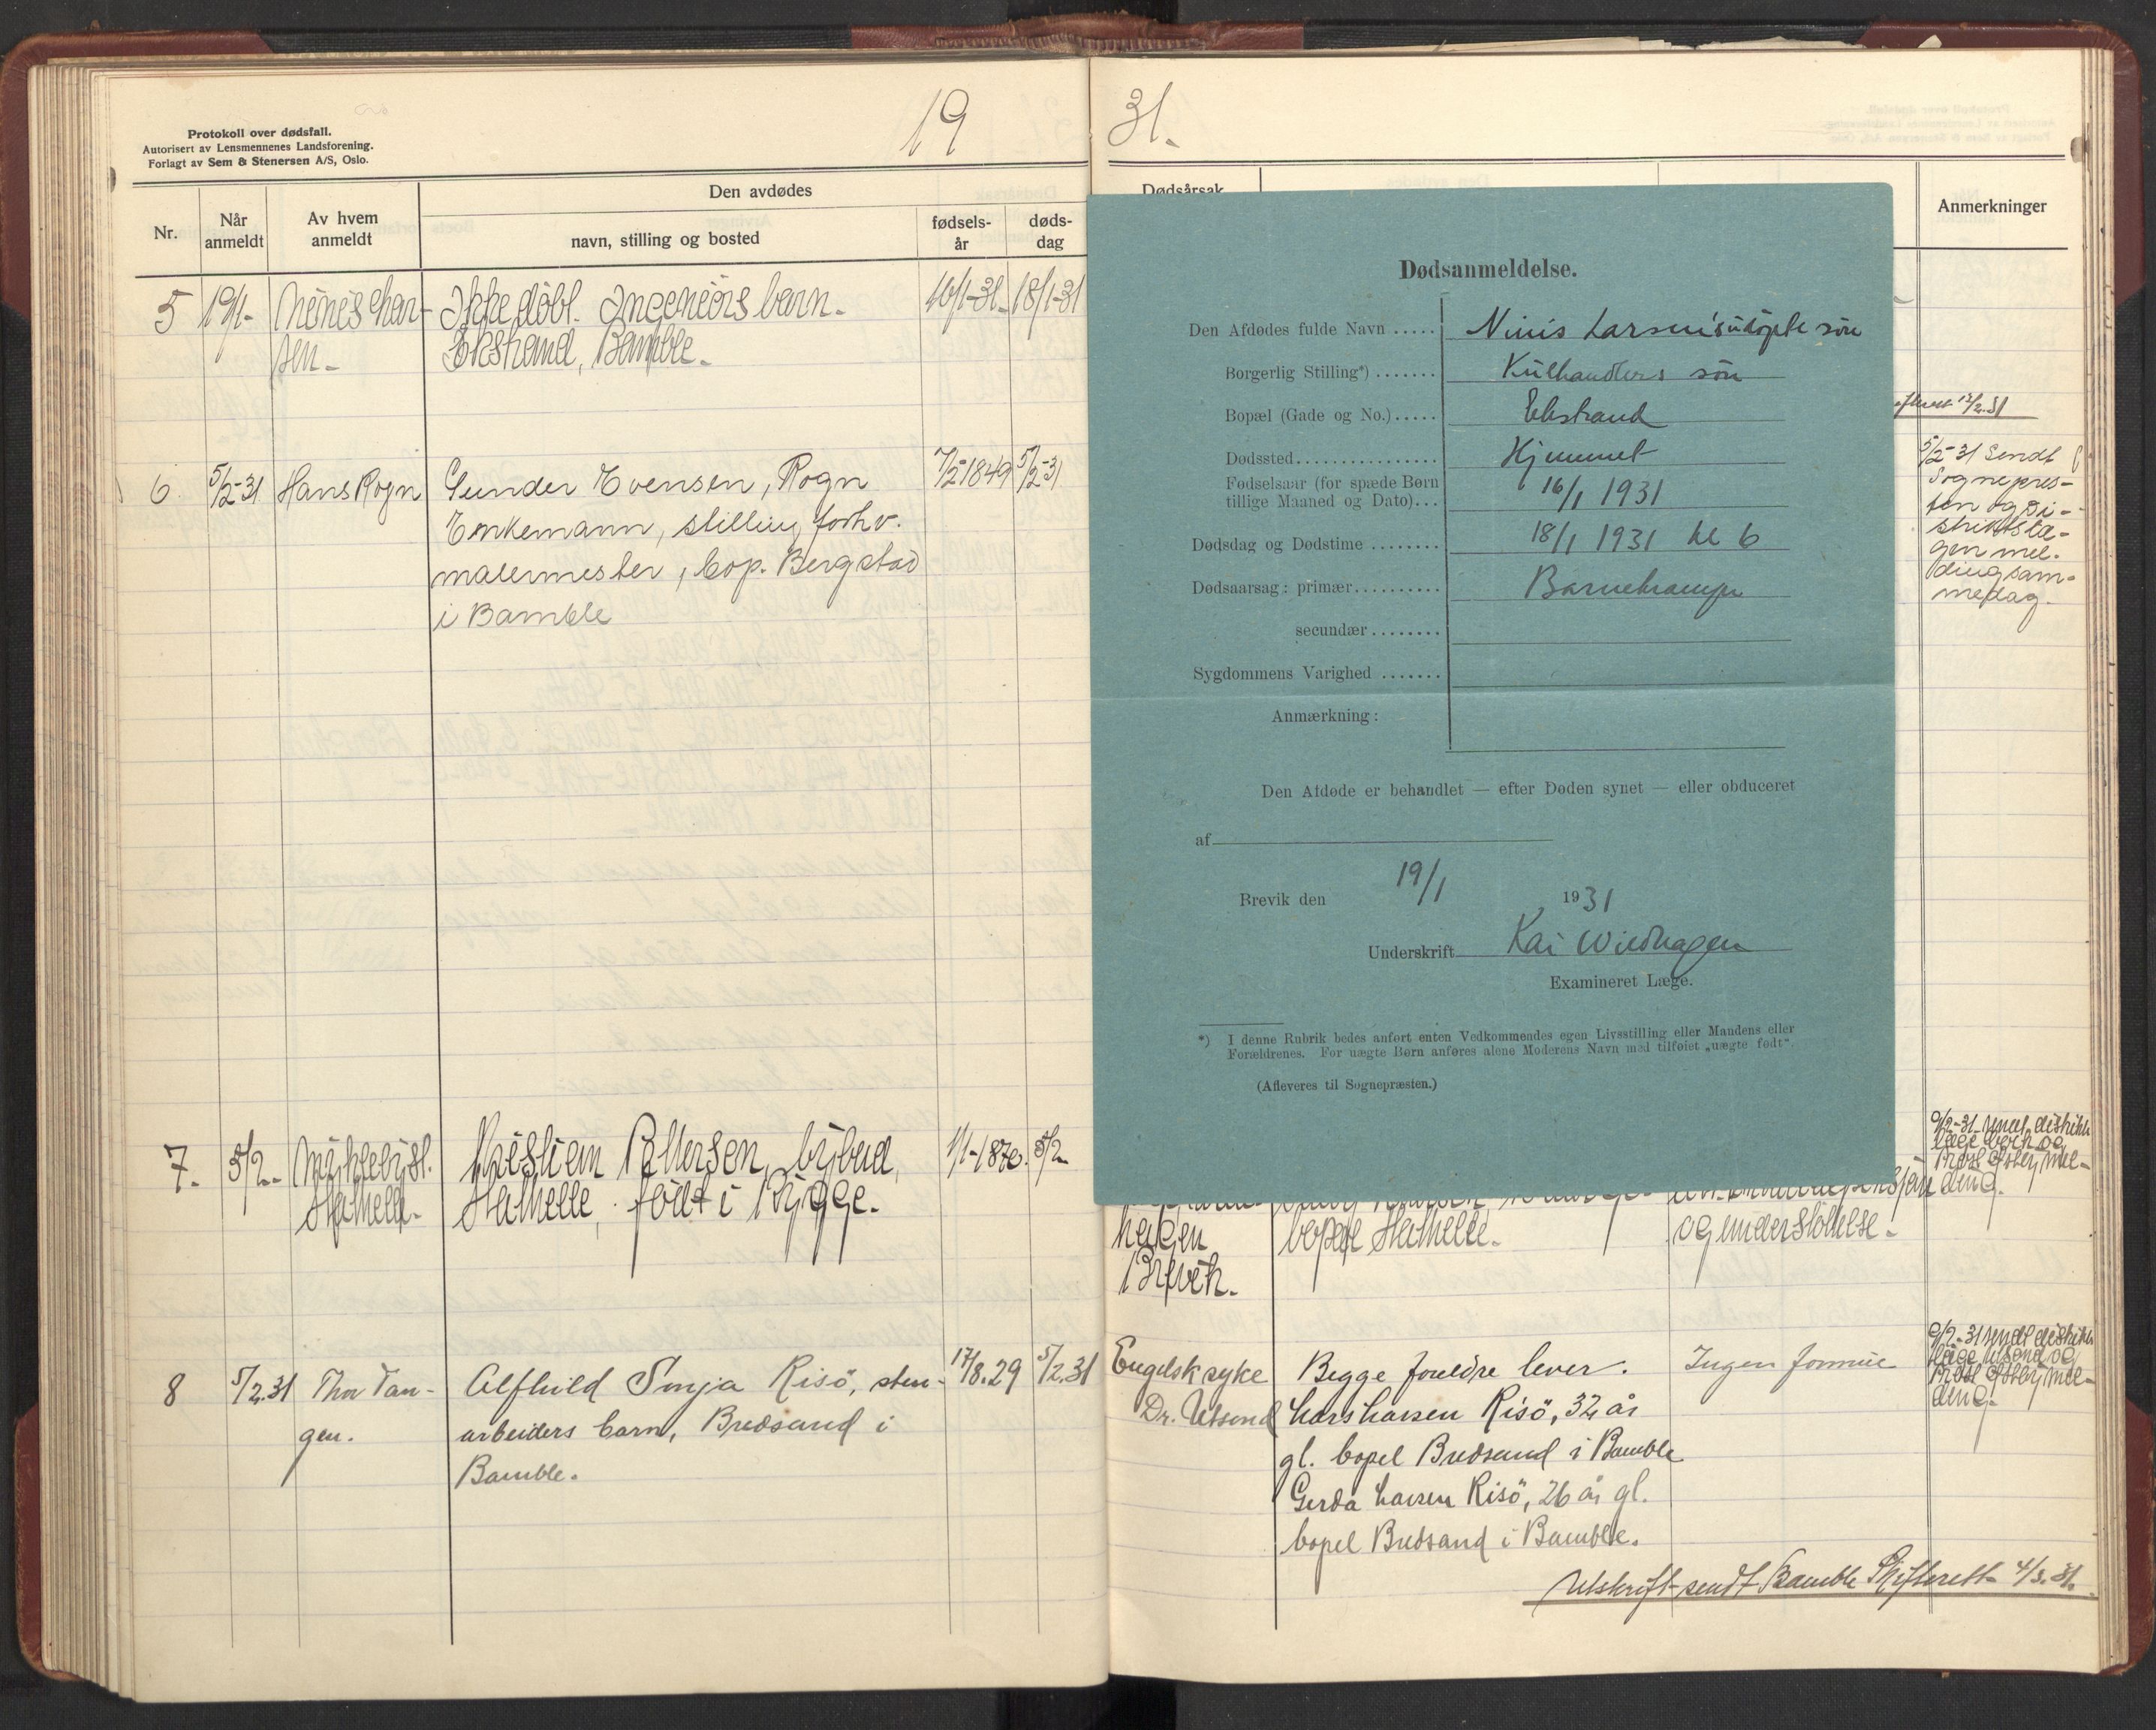 19
31.
Protokoll over dødsfall.
Autorisert av Lensmennenes Landsforening.
Forlagt av Sem & Stenersen A/S, Oslo.
Nr.
Når anmeldt
Av hvem anmeldt
Den avdødes
navn, stilling og bosted
fødsels-år
døds-dag
Dødsårsak
Anmerkninger
5 19/1- Ninis Lar- Ikke døbt. Ingeniørs barn. 16/1-31. 18/1-31
sen. Ekstrand, Bamble.
6 5/2-31 Hans Rogn Gunder Evensen, Rogn 7/2 1849 5/2-31
Enkemann, stilling forhv.
malermester, bop. Bergstad
i Bamble
7. 5/2- Kristian Pettersen, bybud, 1/1-1870. 5/2-
Stathelle. Stathelle, født i Rygge.
8 5/2.31 Thor Tan- Alfhild Sonja Risö, sten- 17/8.29 5/2.31
gen. arbeiders barn, Bredsand i
Bamble.
Dødsanmeldelse.
Den Afdødes fulde Navn ..... Ninis Larsen's udøpte søn
Borgerlig Stilling*) ....... Kulhandlers søn
Bopæl (Gade og No.)..... Ekstrand
Dødssted................ Hjemmet
Fødselsaar (for spæde Børn
tillige Maaned og Dato)... 16/1 1931
Dødsdag og Dødstime ........ 18/1 1931 kl 6
Dødsaarsag: primær.......... Barnekrampe
secundær ........
Sygdommens Varighed .......
Anmærkning:
Den Afdøde er behandlet — efter Døden synet — eller obduceret
af
Brevik den 19/1 1931
Underskrift Kai Wiedhagen
Examineret Læge.
*) I denne Rubrik bedes anført enten Vedkommendes egen Livsstilling eller Mandens eller
Forældrenes. For uægte Børn anføres alene Moderens Navn med tilføiet „uægte født".
(Afleveres til Sognepræsten.)
13/2.31
5/2-31 Sendt
Sognepres-
ten og Di-
striktslæ-
gen mel-
ding sam-
me dag.
9/2-31 sendt distrikts
læge
og
Prost Østby mel-
ding.
hagen bopæl Stathelle. og understøttelse.
Brevik.
Engelsk syke Begge foreldre lever. Ingen formue
Dr. Utsond Lars Larsen Risö, 32 år
gl. bopel Bredsand i Bamble
Gerda Larsen Risö, 26 år gl.
bopel Bredsand i Bamble.
9/2-31 sendt distrikts
læge Utsond og
Prost Østby mel-
ding.
Utskrift sendt Bamble Skifterett 4/3.31.